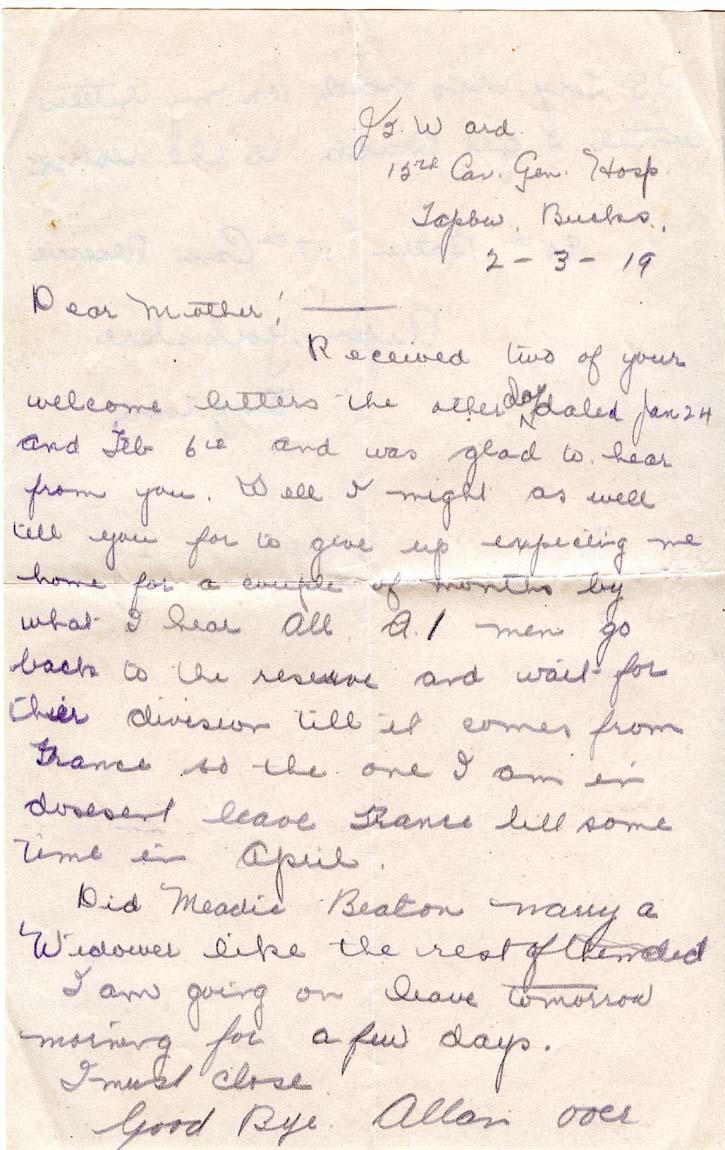 J 3. Ward.
15th Can. Gen. Hosp.
Taplow, Bucks,
2 - 3 - 19
Dear Mother! —
Received two of your
welcome letters the other day dated Jan 24
and Feb 6th and was glad to hear
from you. Well I might as well
tell you for to give up expecting me
home for a couple of months by
what I hear All A.1 men go
back to the reserve and wait for
thier division till it comes from
France so the one I am in
dosesent leave France till some
time in April.
Did Meadie Beaton marry a
Widower like the rest of them did
I am going on leave tomorrow
morning for a few days.
I must close
Good Bye. Allan over